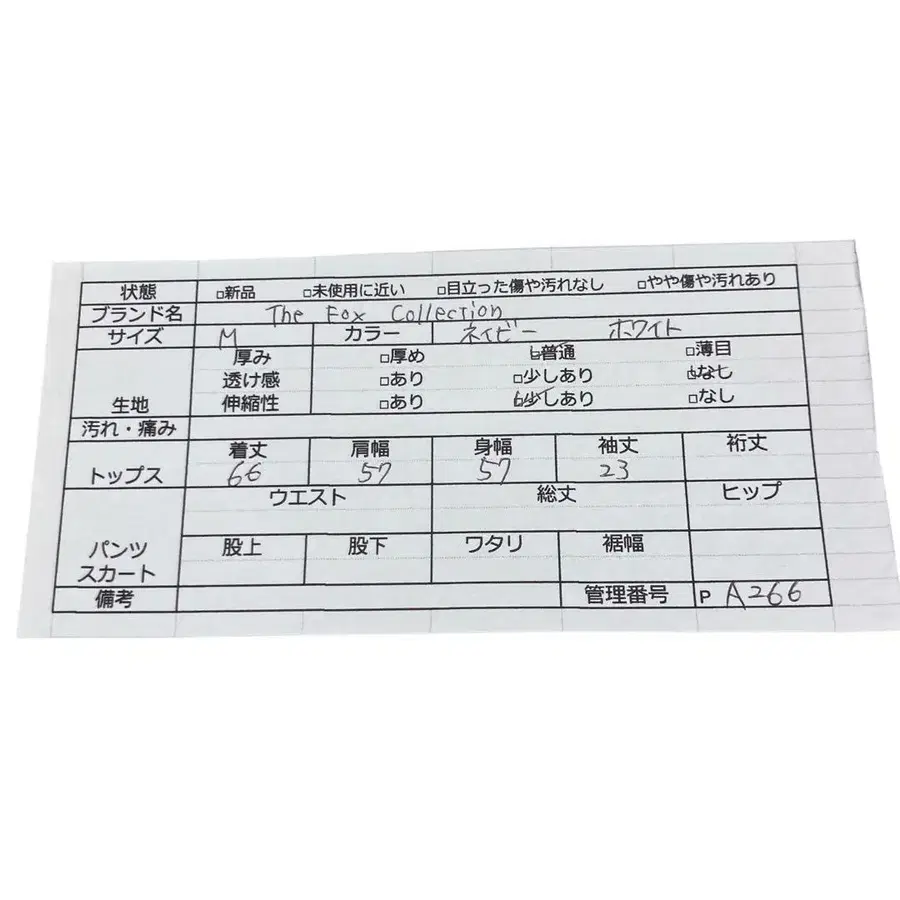 状態 □新品 □未使用に近い □目立った傷や汚れなし □やや傷や汚れあり
ブランド名 The Fox Collection
サイズ M カラー ネイビー ホワイト
厚み □厚め □普通 □薄目
透け感 □あり □少しあり □なし
生地 伸縮性 □あり □少しあり □なし
汚れ・痛み
着丈 肩幅 身幅 袖丈 裄丈
トップス 66 57 57 23
ウエスト 総丈 ヒップ
パンツ 股上 股下 ワタリ 裾幅
スカート
備考 管理番号 P A266